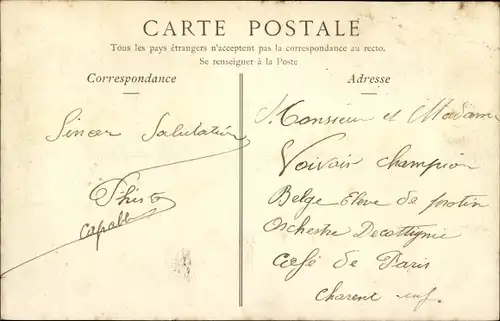 CARTE POSTALE
Tous les pays étrangers n'acceptent pas la correspondance au recto.
Se renseigner à la Poste
Correspondance
Adresse
Sincer Salutation
Monsieur et Madame
Voivoir Champion
Belge Eleve de
Orchestre
Café de Paris